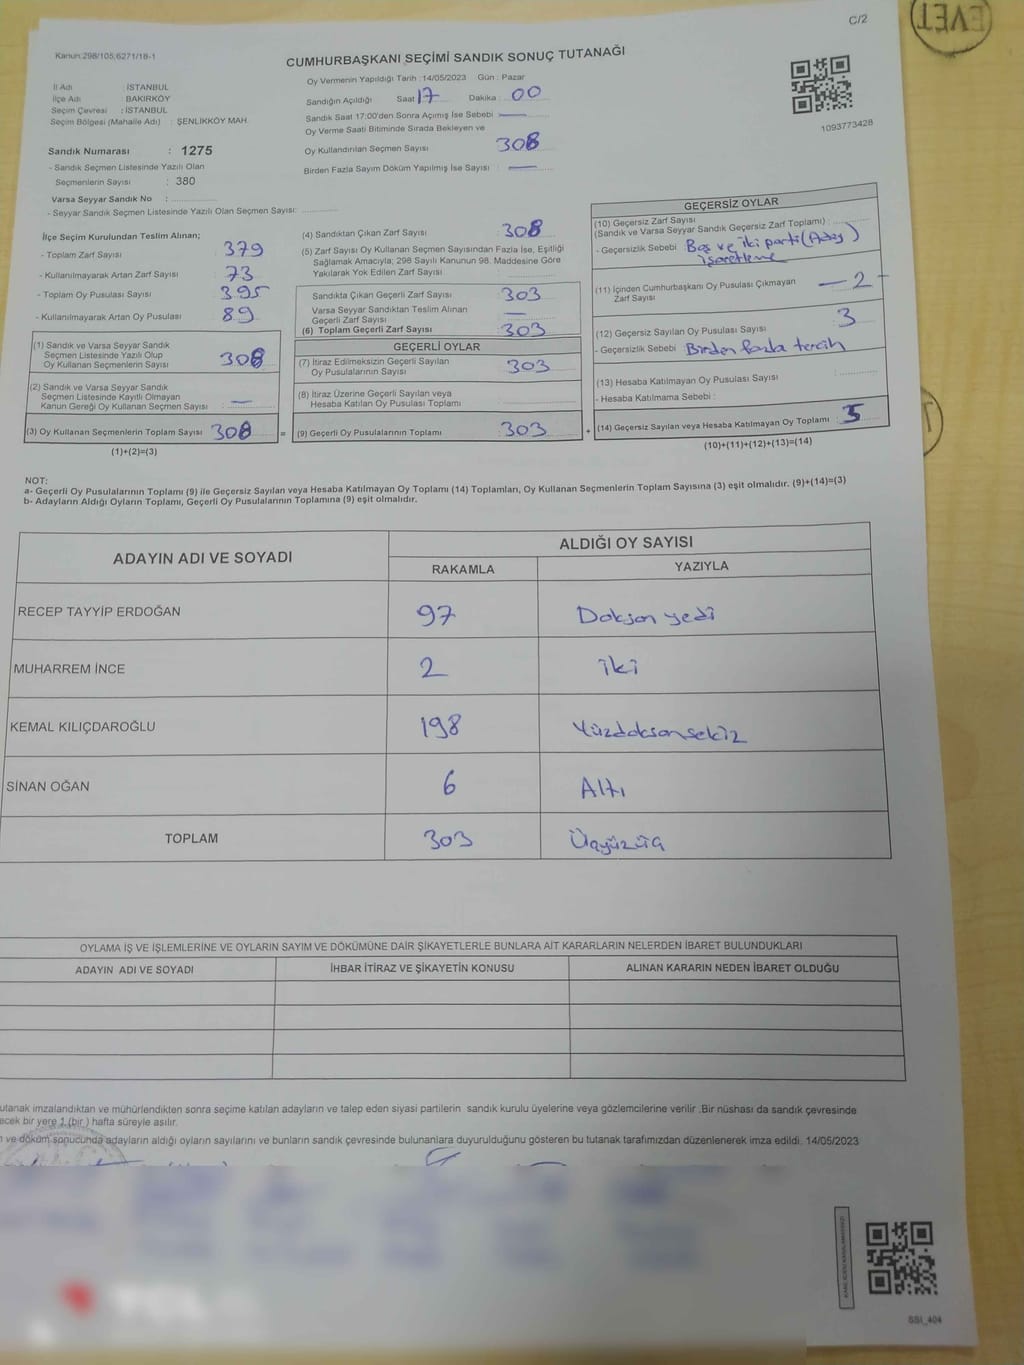 C/2
EVET
Kanun:298/105;6271/18-1
CUMHURBAŞKANI SEÇİMİ SANDIK SONUÇ TUTANAĞI
Oy Vermenin Yapıldığı Tarih : 14/05/2023 Gün : Pazar
İl Adı : İSTANBUL
İlçe Adı : BAKIRKÖY
Seçim Çevresi : İSTANBUL
Seçim Bölgesi (Mahalle Adı) : ŞENLİKKÖY MAH.
Sandığın Açıldığı Saat 17 Dakika : 00
Sandık Saat 17:00'den Sonra Açımış İse Sebebi
Oy Verme Saati Bitiminde Sırada Bekleyen ve
Oy Kullandırılan Seçmen Sayısı 308
Birden Fazla Sayım Döküm Yapılmış İse Sayısı : —
1093773428
Sandık Numarası : 1275
- Sandık Seçmen Listesinde Yazılı Olan
Seçmenlerin Sayısı : 380
Varsa Seyyar Sandık No :
- Seyyar Sandık Seçmen Listesinde Yazılı Olan Seçmen Sayısı:
İlçe Seçim Kurulundan Teslim Alınan;
- Toplam Zarf Sayısı : 379
- Kullanılmayarak Artan Zarf Sayısı : 73
- Toplam Oy Pusulası Sayısı : 395
- Kullanılmayarak Artan Oy Pusulası : 89
(1) Sandık ve Varsa Seyyar Sandık
Seçmen Listesinde Yazılı Olup
Oy Kullanan Seçmenlerin Sayısı : 308
(2) Sandık ve Varsa Seyyar Sandık
Seçmen Listesinde Kayıtlı Olmayan
Kanun Gereği Oy Kullanan Seçmen Sayısı : —
(3) Oy Kullanan Seçmenlerin Toplam Sayısı : 308 =
(1)+(2)=(3)
(4) Sandıktan Çıkan Zarf Sayısı : 308
(5) Zarf Sayısı Oy Kullanan Seçmen Sayısından Fazla İse, Eşitliği
Sağlamak Amacıyla; 298 Sayılı Kanunun 98. Maddesine Göre
Yakılarak Yok Edilen Zarf Sayısı :
Sandıkta Çıkan Geçerli Zarf Sayısı : 303
Varsa Seyyar Sandıktan Teslim Alınan
Geçerli Zarf Sayısı : —
(6) Toplam Geçerli Zarf Sayısı : 303
GEÇERLİ OYLAR
(7) İtiraz Edilmeksizin Geçerli Sayılan
Oy Pusulalarının Sayısı : 303
(8) İtiraz Üzerine Geçerli Sayılan veya
Hesaba Katılan Oy Pusulası Toplamı :
(9) Geçerli Oy Pusulalarının Toplamı : 303 +
GEÇERSİZ OYLAR
(10) Geçersiz Zarf Sayısı
(Sandık ve Varsa Seyyar Sandık Geçersiz Zarf Toplamı) :
- Geçersizlik Sebebi : Boş ve iki parti (Aday)
işaretleme
(11) İçinden Cumhurbaşkanı Oy Pusulası Çıkmayan
Zarf Sayısı — 2 -
(12) Geçersiz Sayılan Oy Pusulası Sayısı : 3
- Geçersizlik Sebebi : Birden fazla tercih
(13) Hesaba Katılmayan Oy Pusulası Sayısı :
- Hesaba Katılmama Sebebi :
(14) Geçersiz Sayılan veya Hesaba Katılmayan Oy Toplamı : 5
(10)+(11)+(12)+(13)=(14)
NOT:
a- Geçerli Oy Pusulalarının Toplamı (9) ile Geçersiz Sayılan veya Hesaba Katılmayan Oy Toplamı (14) Toplamları, Oy Kullanan Seçmenlerin Toplam Sayısına (3) eşit olmalıdır. (9)+(14)=(3)
b- Adayların Aldığı Oyların Toplamı, Geçerli Oy Pusulalarının Toplamına (9) eşit olmalıdır.
ADAYIN ADI VE SOYADI
ALDIĞI OY SAYISI
RAKAMLA YAZIYLA
RECEP TAYYİP ERDOĞAN 97 Doksan yedi
MUHARREM İNCE 2 iki
KEMAL KILIÇDAROĞLU 198 Yüzdoksansekiz
SİNAN OĞAN 6 Altı
TOPLAM 303 Üçyüzüç
OYLAMA İŞ VE İŞLEMLERİNE VE OYLARIN SAYIM VE DÖKÜMÜNE DAİR ŞİKAYETLERLE BUNLARA AİT KARARLARIN NELERDEN İBARET BULUNDUKLARI
ADAYIN ADI VE SOYADI İHBAR İTİRAZ VE ŞİKAYETİN KONUSU ALINAN KARARIN NEDEN İBARET OLDUĞU
utanak imzalandıktan ve mühürlendikten sonra seçime katılan adayların ve talep eden siyasi partilerin sandık kurulu üyelerine veya gözlemcilerine verilir .Bir nüshası da sandık çevresinde
ecek bir yere 1 (bir ) hafta süreyle asılır.
ı ve döküm sonucunda adayların aldığı oyların sayılarını ve bunların sandık çevresinde bulunanlara duyurulduğunu gösteren bu tutanak tarafımızdan düzenlenerek imza edildi. 14/05/2023
SSI_404